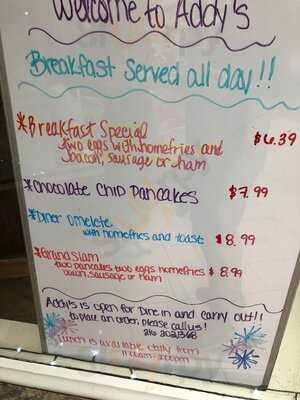 Welcome to Addy's
Breakfast Served all day!!
*Breakfast Special $6.39
two eggs with homefries and
bacon, sausage or ham
*Chocolate Chip Pancakes $7.99
*Diner Omelete
with homefries and toast $8.99
*Grand Slam
two pancakes two eggs homefries $8.99
bacon, sausage or ham
Addy's is open for Dine in and carry out!!
to place an order, please call us!
Lunch is available daily from